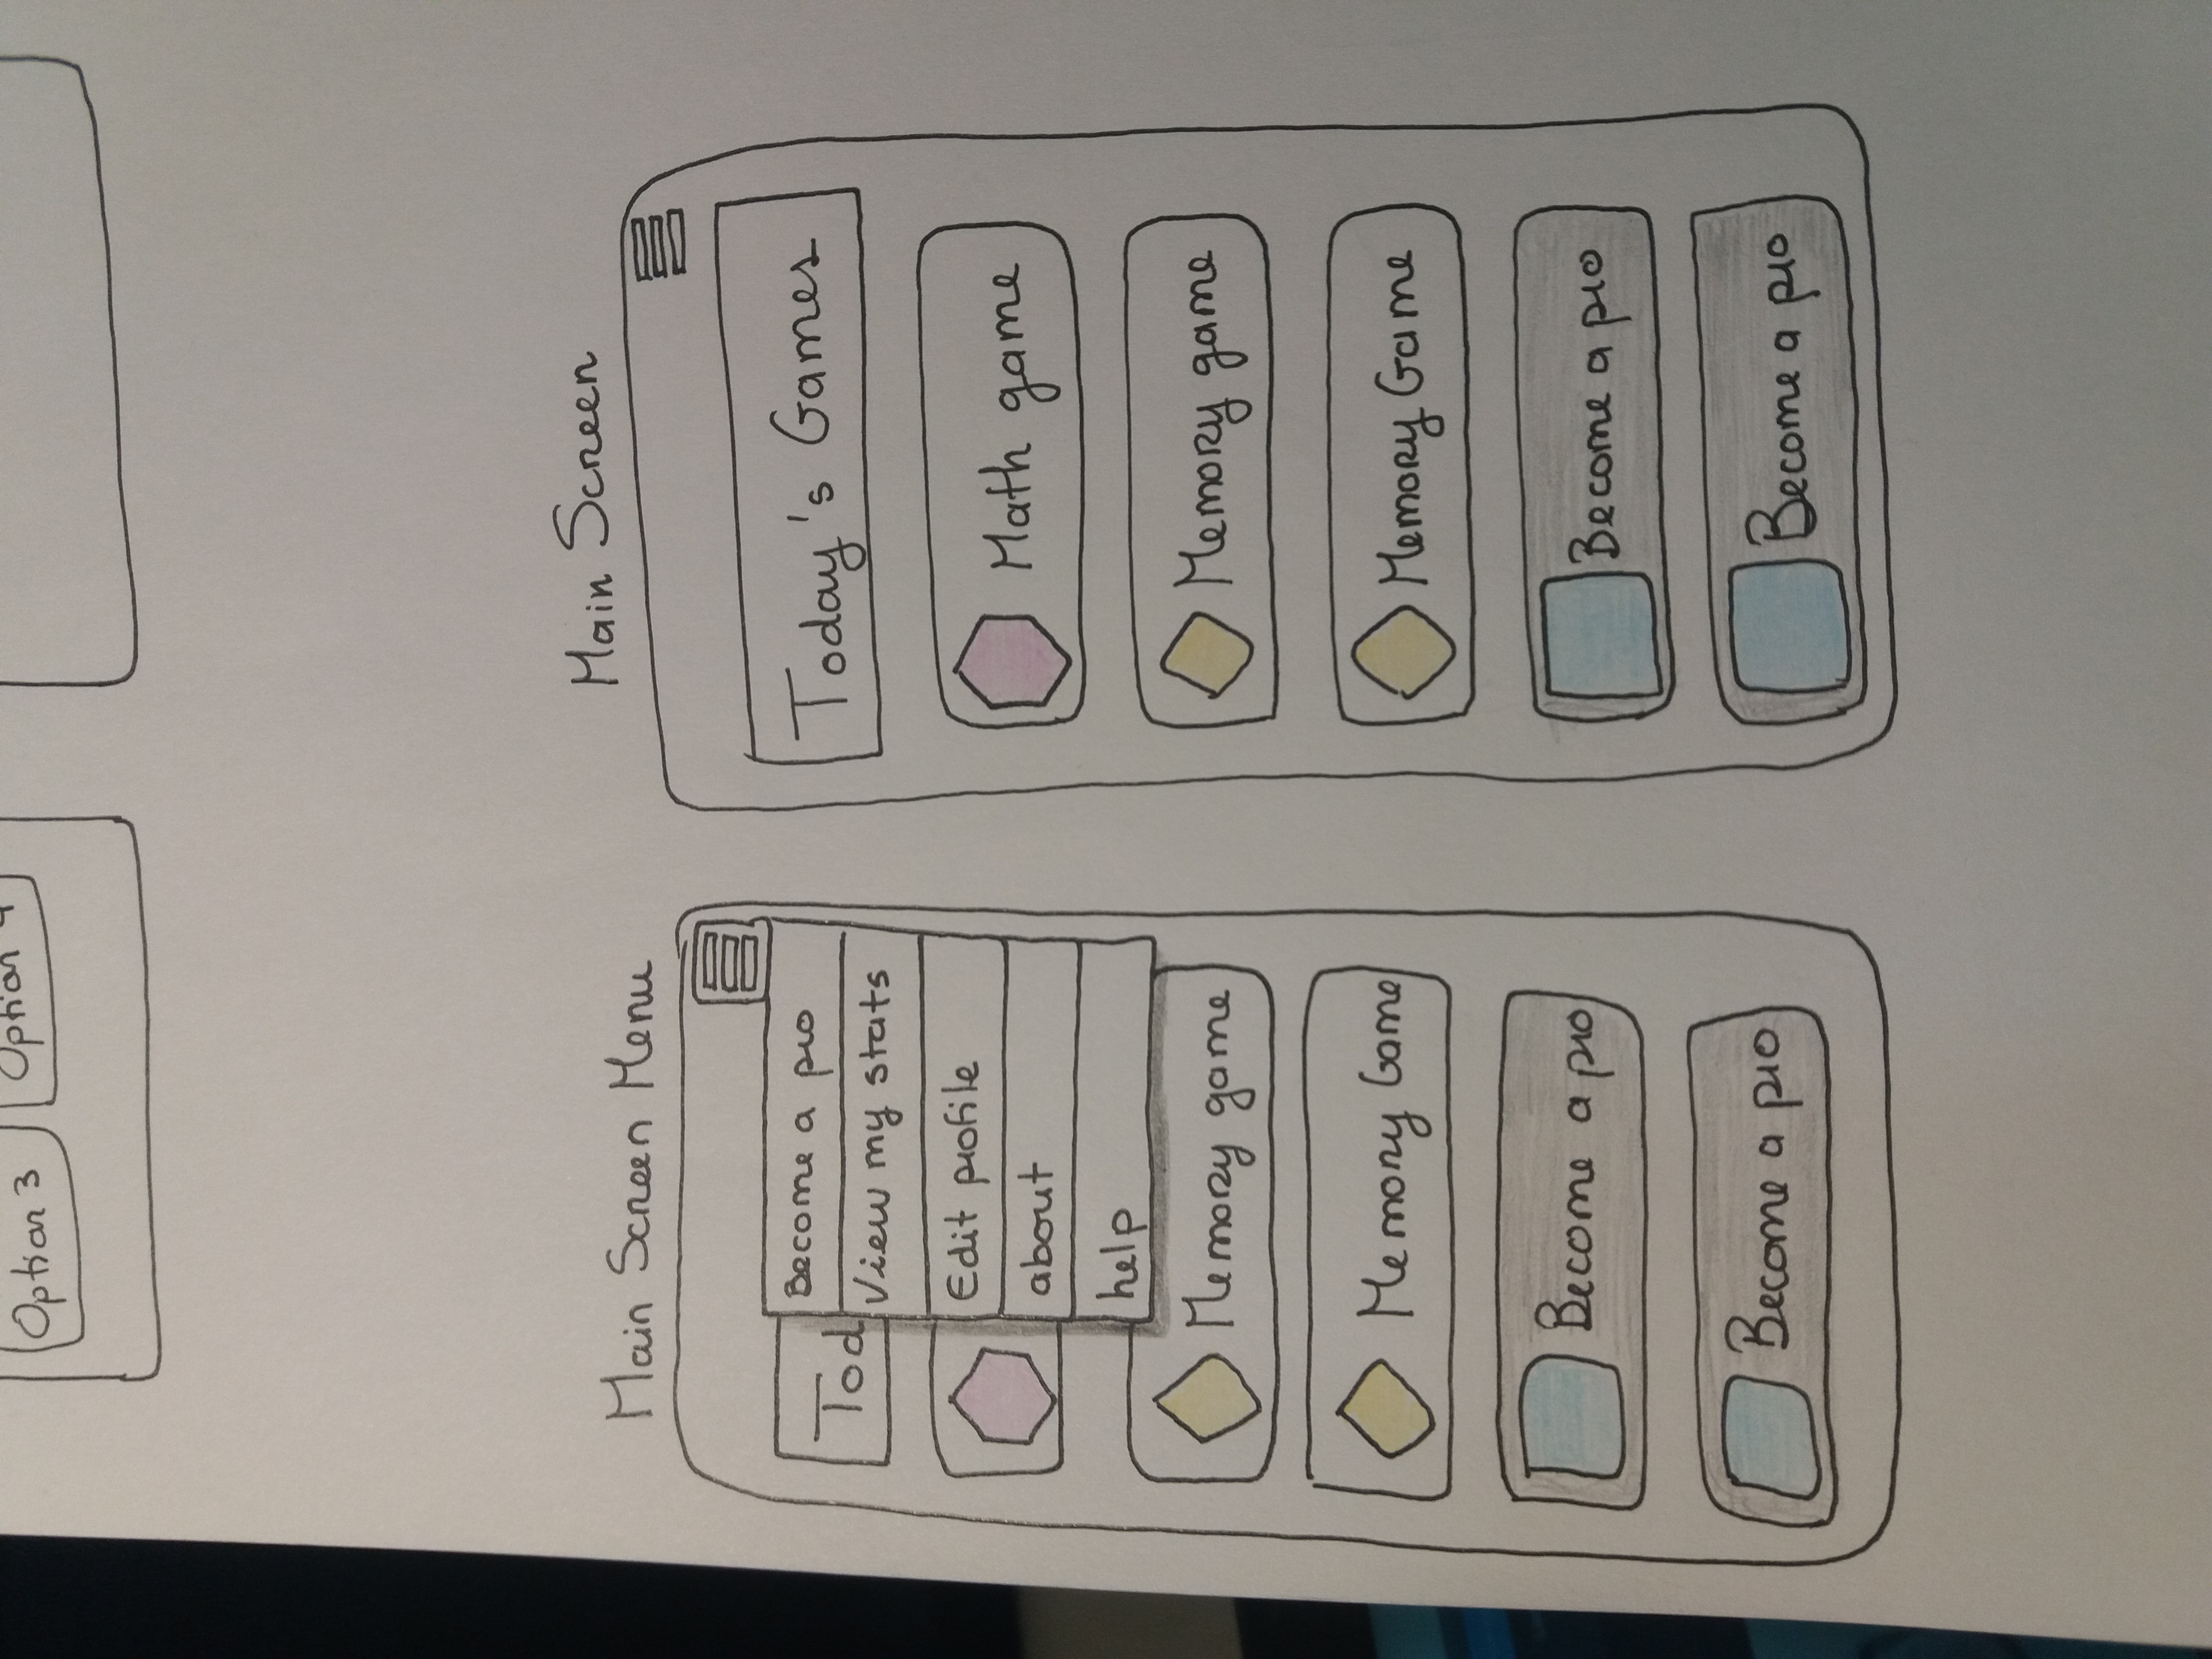 Option 3
Option 4
Main Screen Menu
Tod
Become a pro
View my stats
Edit profile
about
help
Memory game
Memory Game
Become a pro
Become a pro
Main Screen
Today's Games
Math game
Memory game
Memory Game
Become a pro
Become a pro